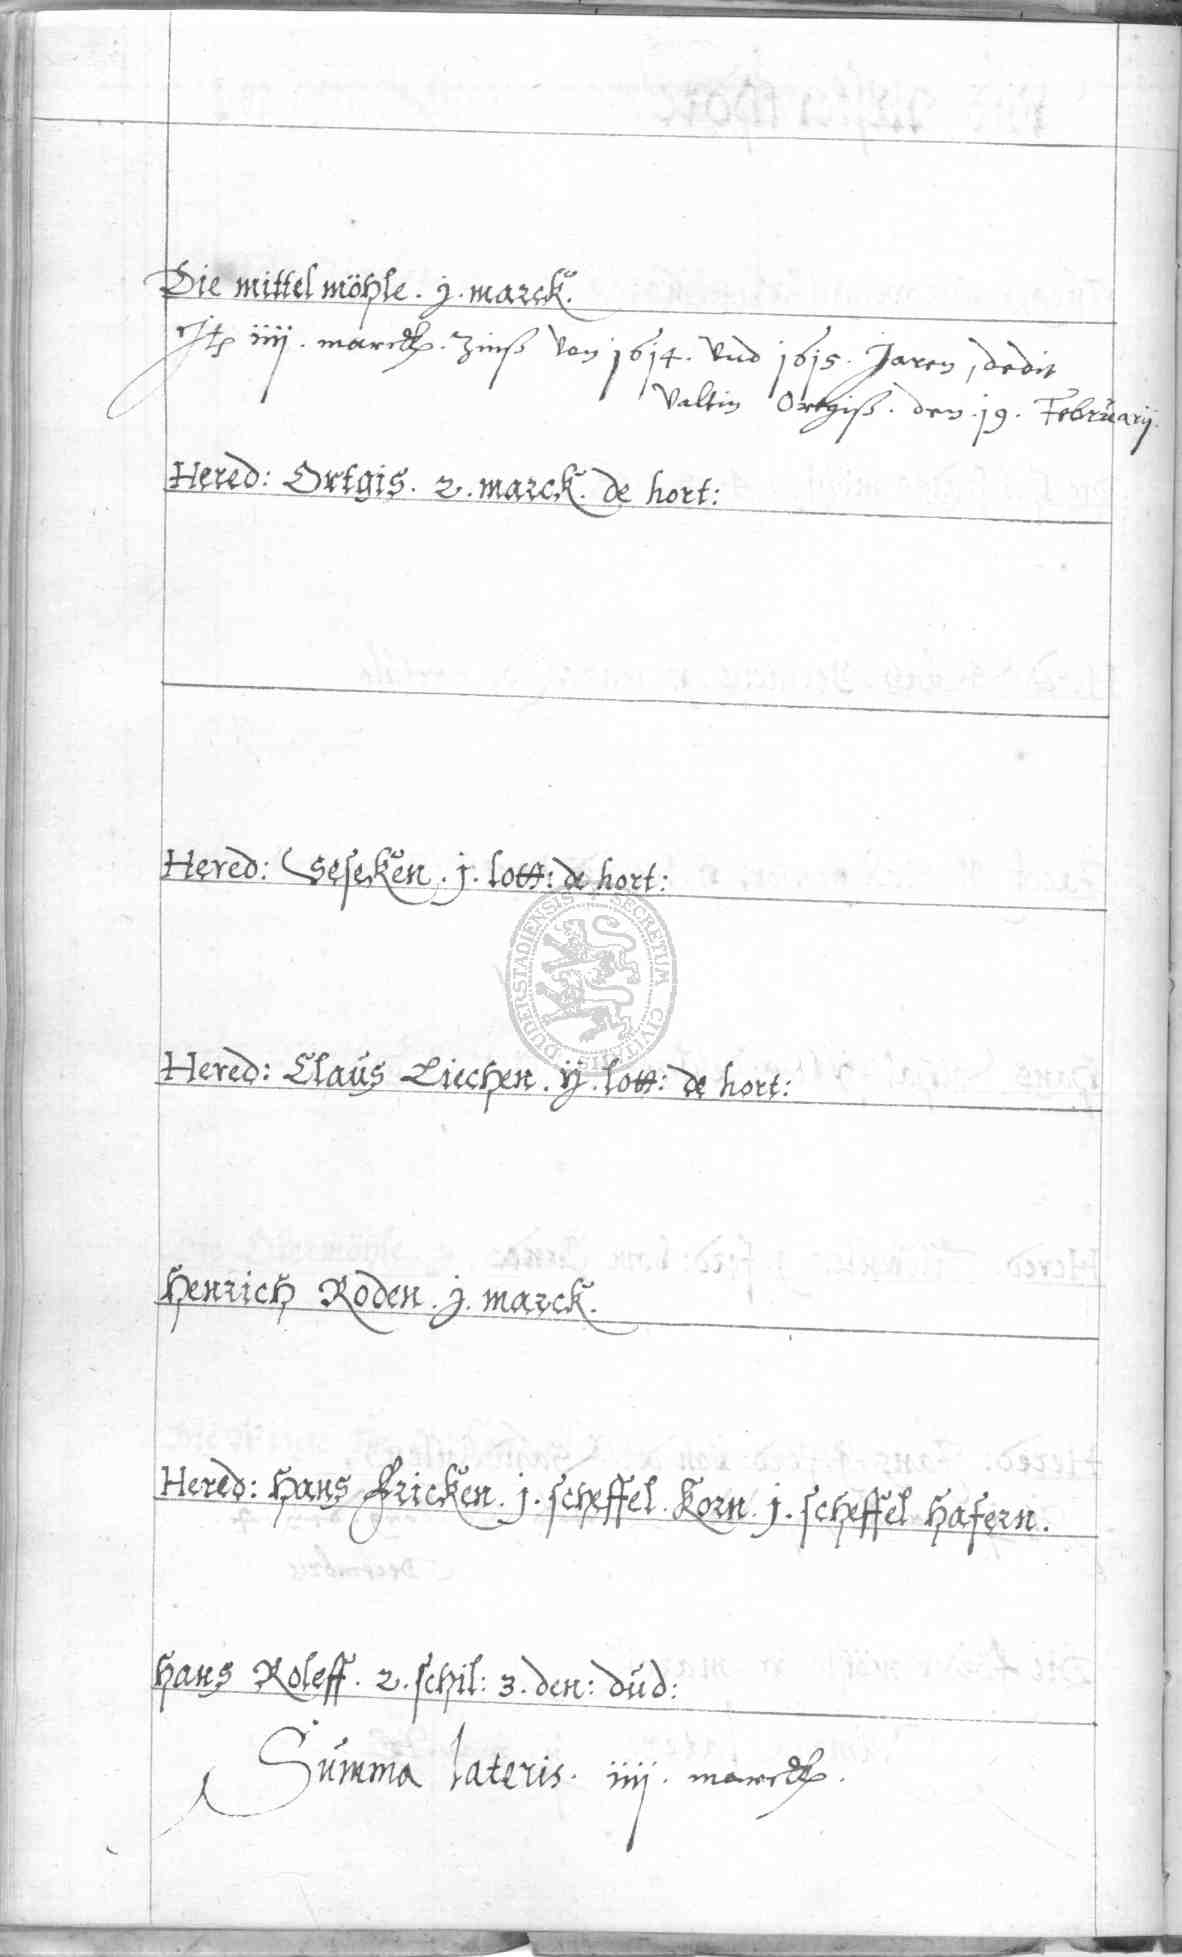 Die mittel möhle. j. marck.
Itē iiij. marck. Zinß von 1614. vnd 1615. Jaren, dedit
Valtin Ortgiß. den. 19. Februarij.
Hered: Ortgis. 2. marck. de hort:
Hered: Geseken. j. lott: de hort:
SECRETUM CIVITATIS DUDERSTADIENSIS
Hered: Claus Ziechen. ij. lott: de hort:
Henrich Roden. j. marck.
Hered: Hans Fricken. j. scheffel. Korn. j. scheffel Hafern.
Hans Roleff. 2. schil: 3. den: dud:
Summa lateris. iiij. marck.